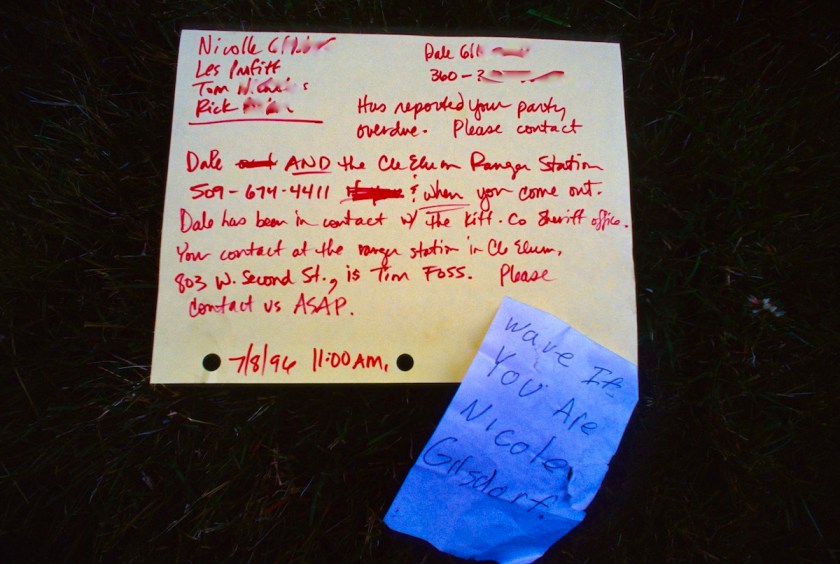 Nicolle
Les Profitt
Tom
Rick
Dale
360-
Has reported your party
overdue. Please contact
Dale AND the Cle Elum Ranger Station
509-674-4411 & when you come out.
Dale has been in contact w/ the Kitt. Co Sheriff office.
Your contact at the ranger station in Cle Elum,
803 W. Second St., is Tim Foss. Please
contact us ASAP.
7/8/96 11:00 AM.
Wave If
You Are
Nicole
Gilsdorf.